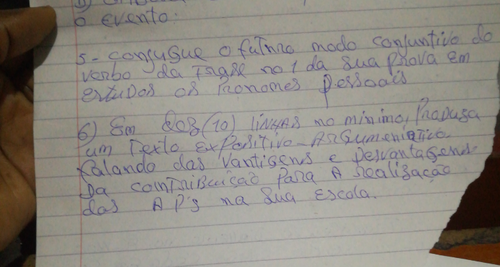 o evento.
5 - conjugue o futuro modo conjuntivo do
verbo da frase no 1 da sua prova em
em todos os Pronomes Pessoais
6) Em dez (10) LINHAS no mínimo, Produza
um Texto Expositivo - Argumentativo
Falando das Vantagens e Desvantagens
Da contribuição Para A Realização
das AP's na sua Escola.